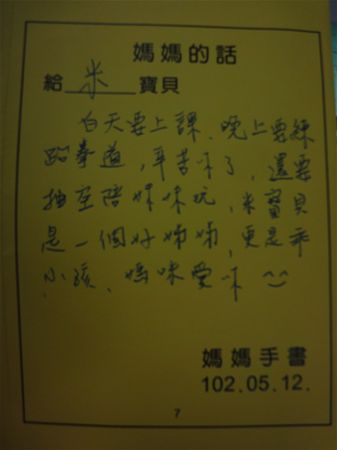 媽媽的話
給 米 寶貝
白天要上課、晚上要練
跆拳道，辛苦你了，還要
抽空陪妹妹玩，米寶貝
是一個好姊姊，更是乖
小孩、媽咪愛你
媽媽手書
102.05.12.
7